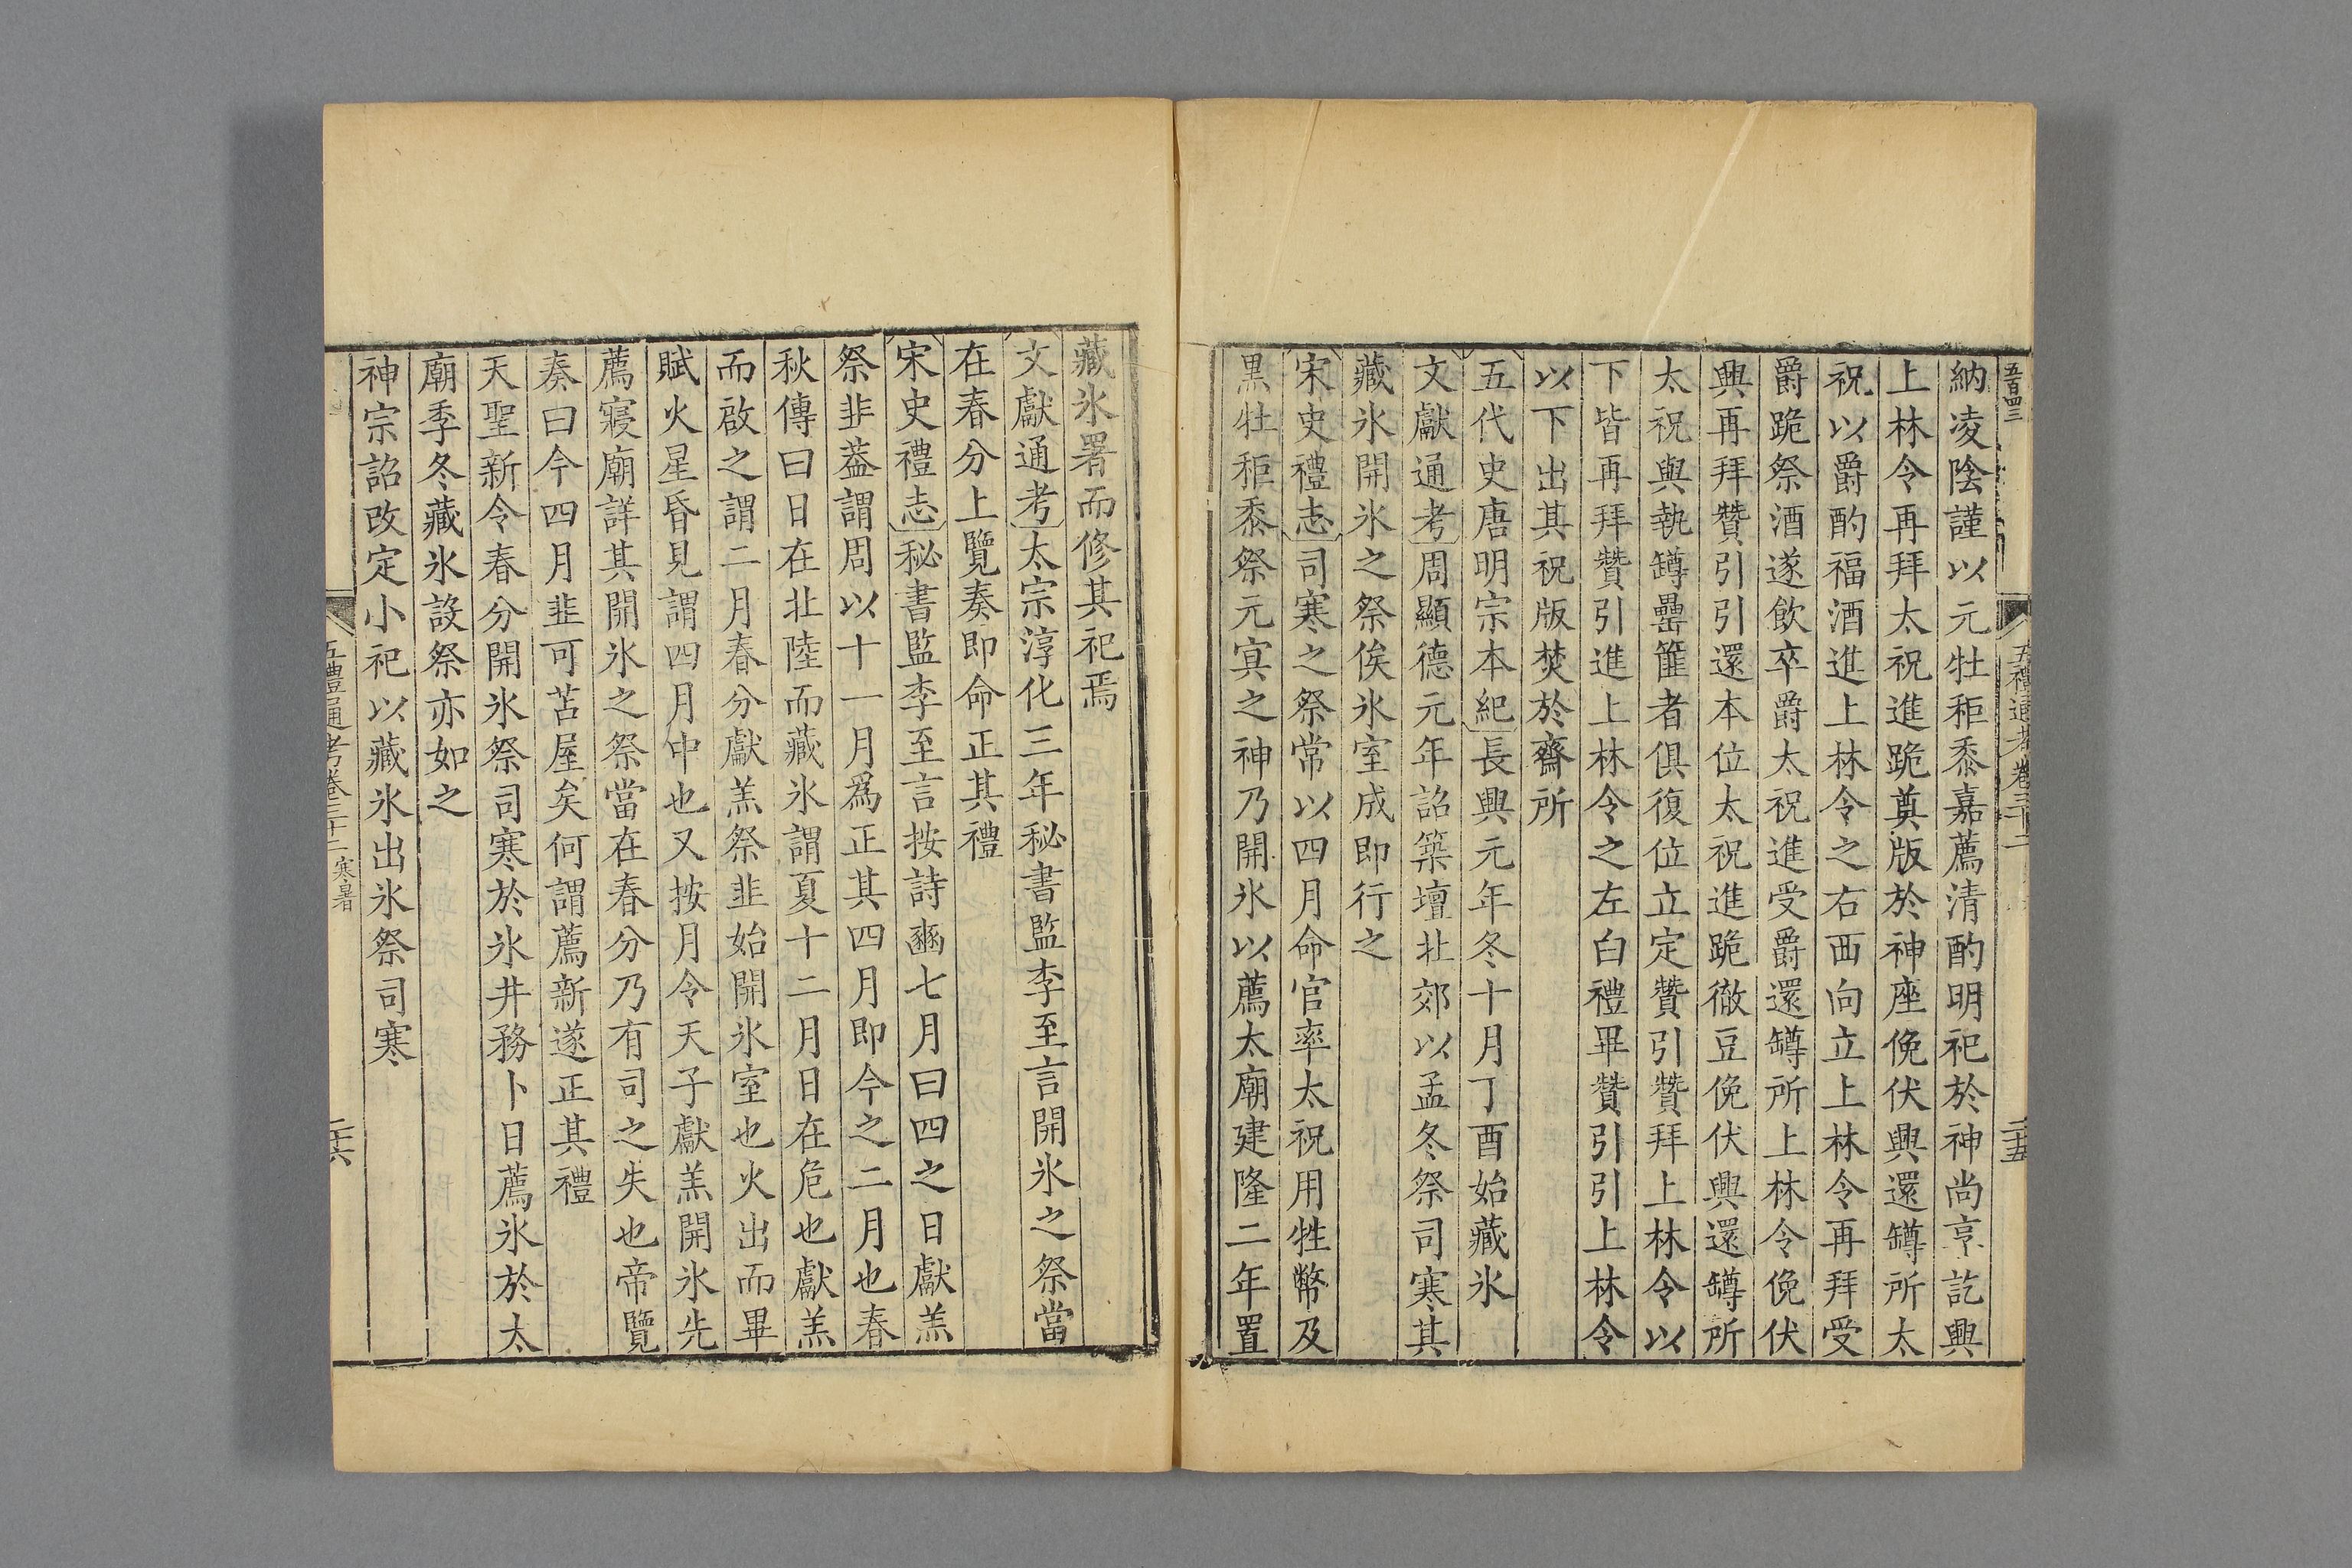 五百四三
五禮通考卷三十二
二十五
納凌陰謹以元牡秬黍嘉薦清酌明祀於神尚亨訖興
上林令再拜太祝進跪奠版於神座俛伏興還罇所太
祝以爵酌福酒進上林令之右西向立上林令再拜受
爵跪祭酒遂飲卒爵太祝進受爵還罇所上林令俛伏
興再拜贊引引還本位太祝進跪徹豆俛伏興還罇所
太祝與執罇罍篚者俱復位立定贊引贊拜上林令以
下皆再拜贊引進上林令之左白禮畢贊引引上林令
以下出其祝版焚於齋所
五代史唐明宗本紀長興元年冬十月丁酉始藏氷
文獻通考周顯德元年詔築壇北郊以孟冬祭司寒其
藏氷開氷之祭俟氷室成即行之
宋史禮志司寒之祭常以四月命官率太祝用牲幣及
黑牡秬黍祭元冥之神乃開氷以薦太廟建隆二年置
藏氷署而修其祀焉
文獻通考太宗淳化三年秘書監李至言開氷之祭當
在春分上覽奏即命正其禮
宋史禮志秘書監李至言按詩豳七月曰四之日獻羔
祭韭葢謂周以十一月爲正其四月即今之二月也春
秋傳曰日在北陸而藏氷謂夏十二月日在危也獻羔
而啟之謂二月春分獻羔祭韭始開氷室也火出而畢
賦火星昏見謂四月中也又按月令天子獻羔開氷先
薦寢廟詳其開氷之祭當在春分乃有司之失也帝覽
奏曰今四月韭可苫屋矣何謂薦新遂正其禮
天聖新令春分開氷祭司寒於氷井務卜日薦氷於太
廟季冬藏氷設祭亦如之
神宗詔改定小祀以藏氷出氷祭司寒
五禮通考卷三十二 寒暑
二十六